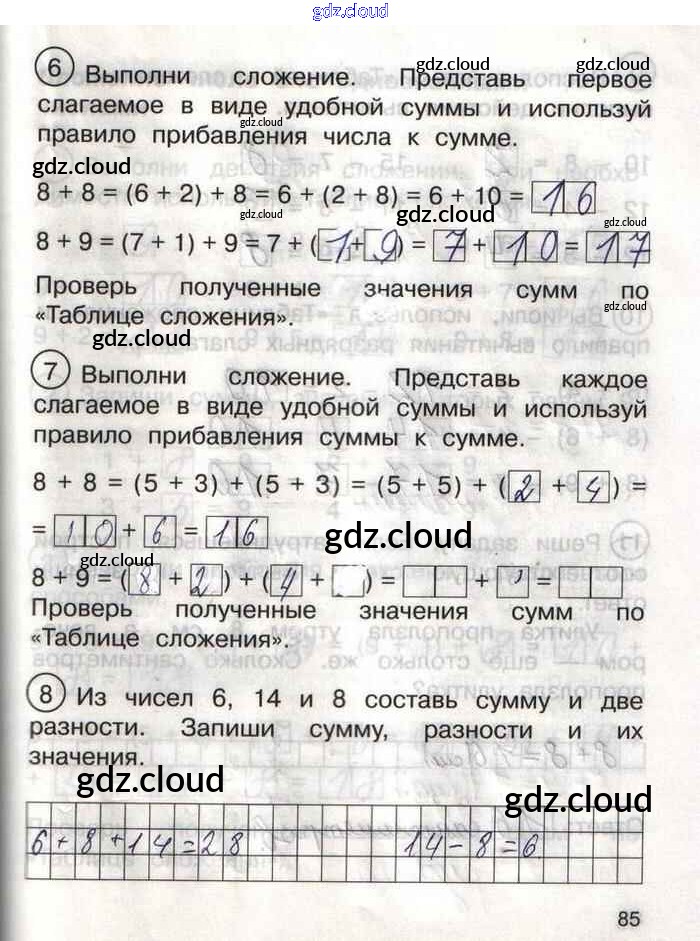 gdz.cloud
gdz.cloud
6 Выполни сложение. Представь первое
слагаемое в виде удобной суммы и используй
gdz.cloud
правило прибавления числа к сумме.
gdz.cloud
8 + 8 = (6 + 2) + 8 = 6 + (2 + 8) = 6 + 10 = 16
gdz.cloud gdz.cloud
gdz.cloud
8 + 9 = (7 + 1) + 9 = 7 + (1+9) = 7 + 10 = 17
Проверь полученные значения сумм по
gdz.cloud
«Таблице сложения».
gdz.cloud
gdz.cloud
7 Выполни сложение. Представь каждое
слагаемое в виде удобной суммы и используй
правило прибавления суммы к сумме.
8 + 8 = (5 + 3) + (5 + 3) = (5 + 5) + (2 + 4) =
= 10 + 6 = 16
gdz.cloud
gdz.cloud
8 + 9 = (8 + 2) + (4 + ) = + =
Проверь полученные значения сумм по
gdz.cloud
«Таблице сложения».
8 Из чисел 6, 14 и 8 составь сумму и две
разности. Запиши сумму, разности и их
значения.
gdz.cloud
gdz.cloud
6+8+14=28 14-8=6
85
gdz.cloud